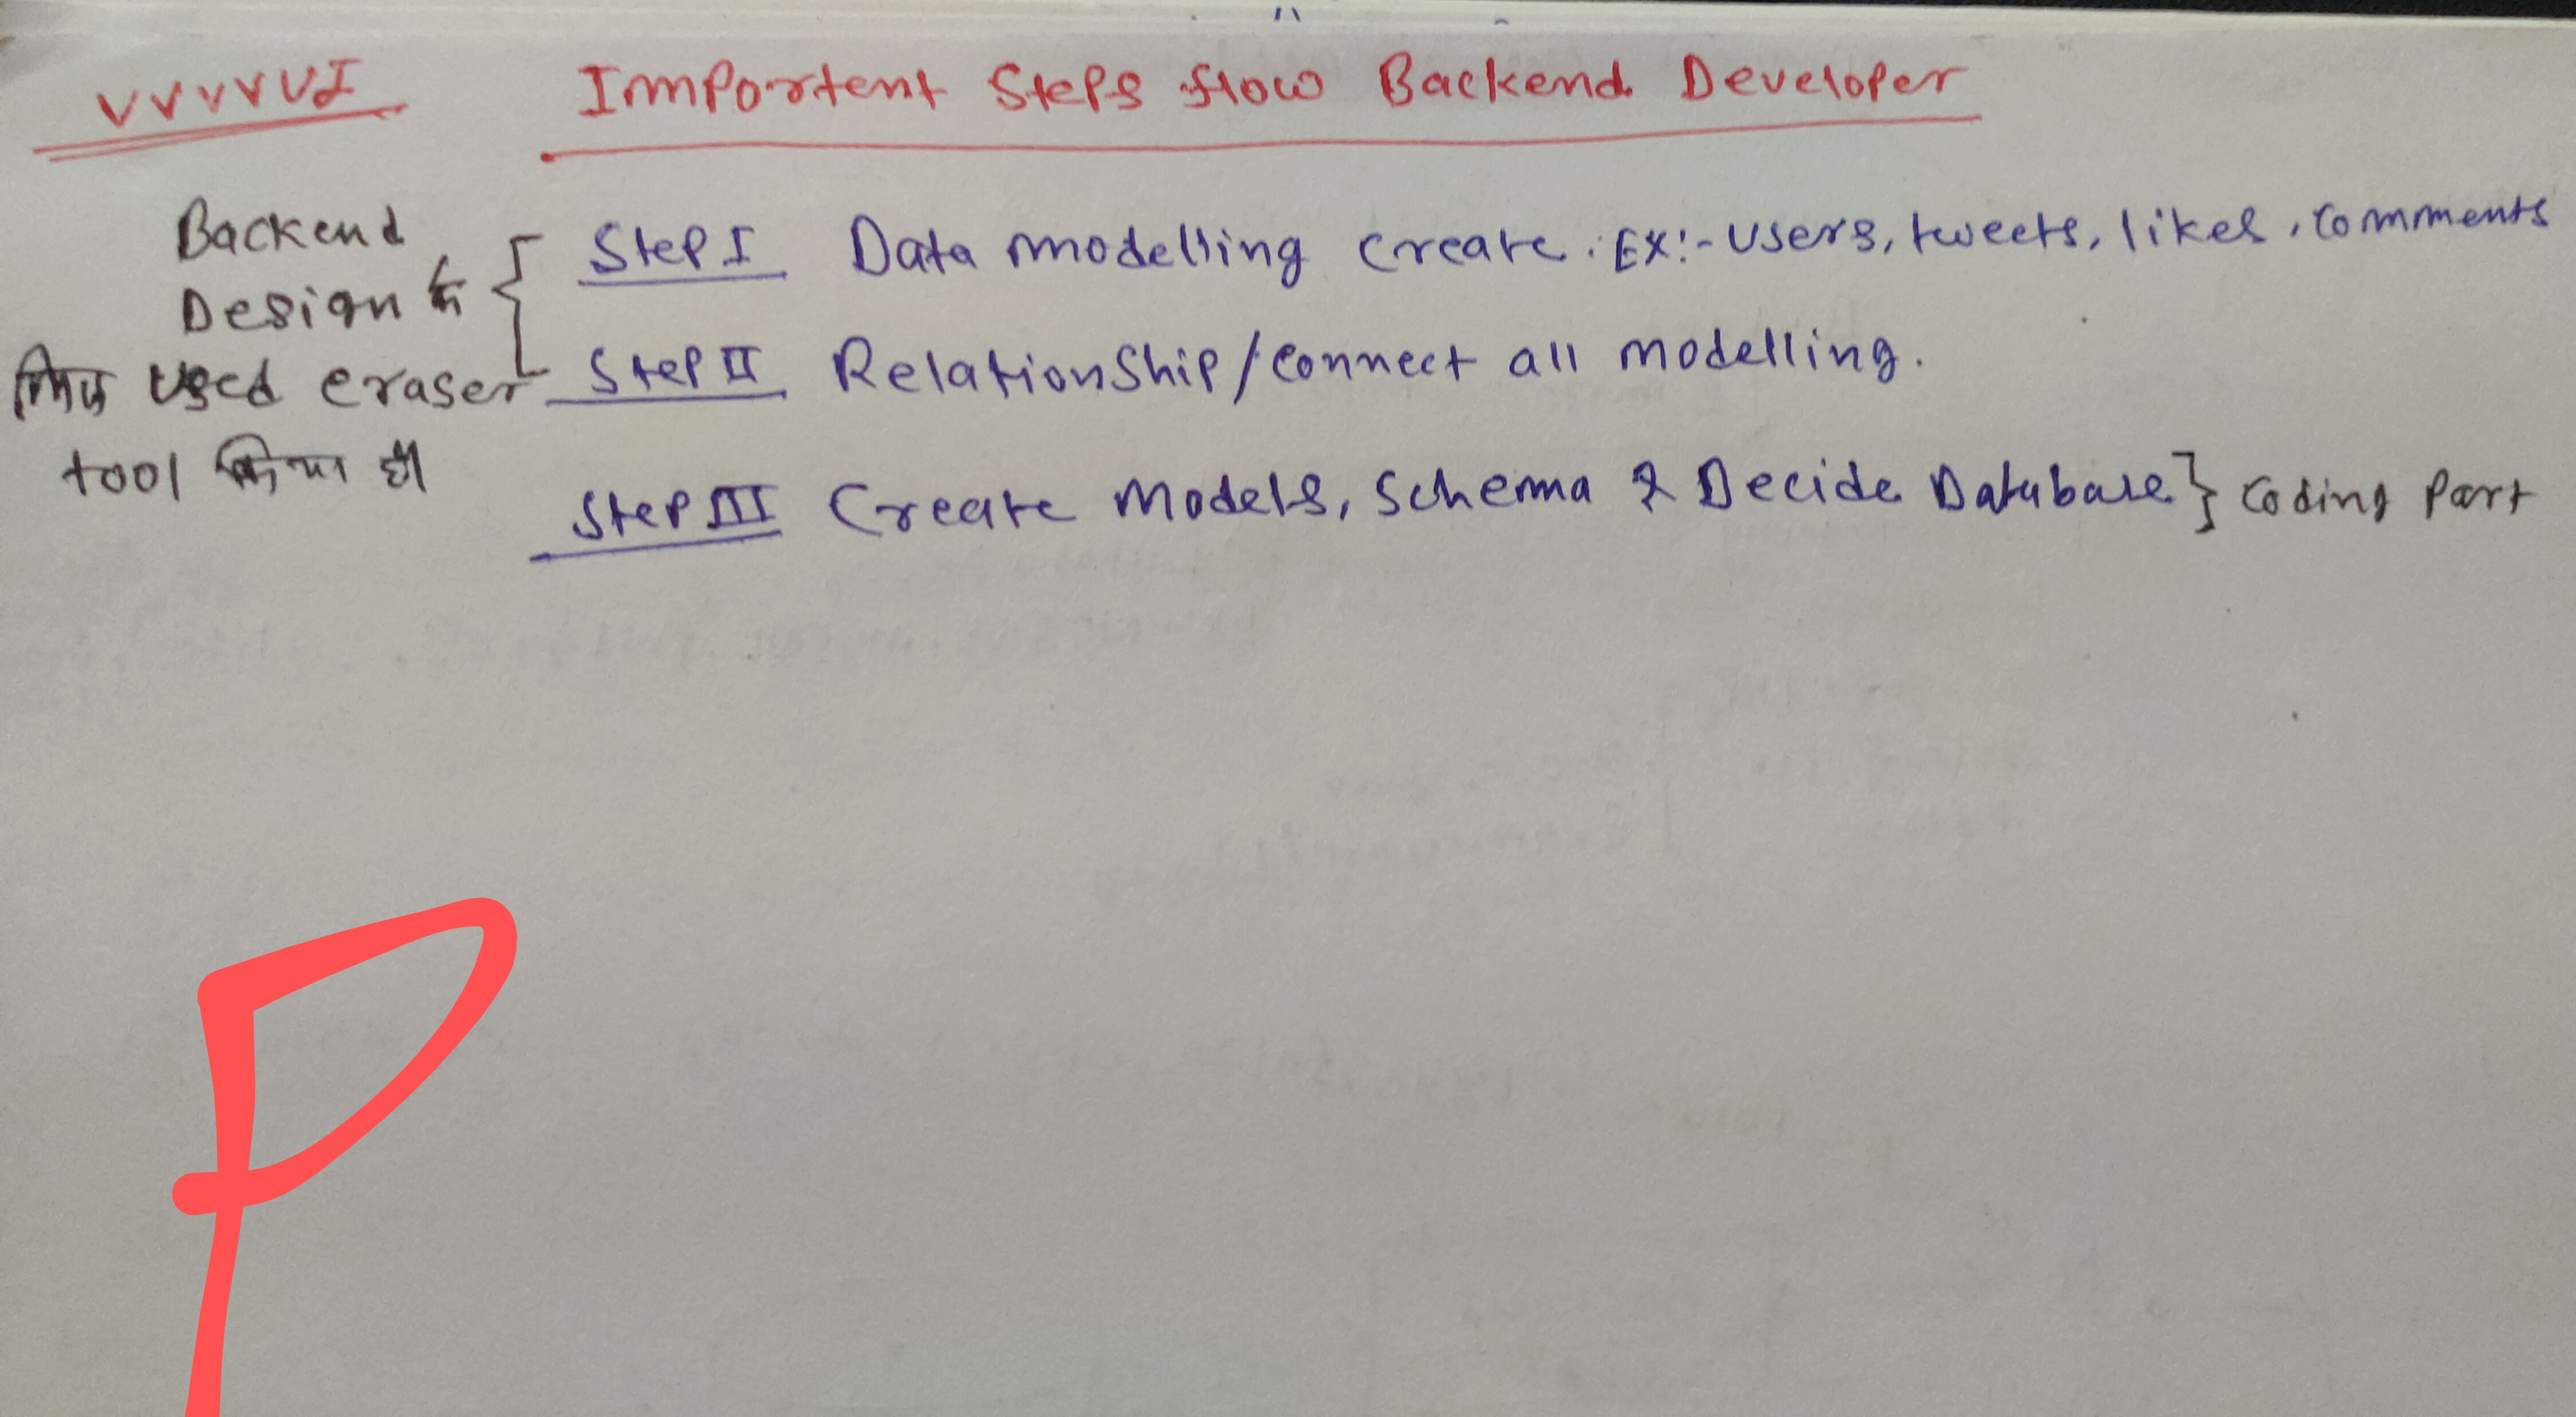 VVVVVI Importent Steps flow Backend Developer
Backend
Design के
लिए used eraser
tool किया है
Step I Data modelling create. EX:- Users, tweets, likes, comments
Step II Relationship/connect all modelling.
Step III Create Models, Schema & Decide Database } Coding Part
P